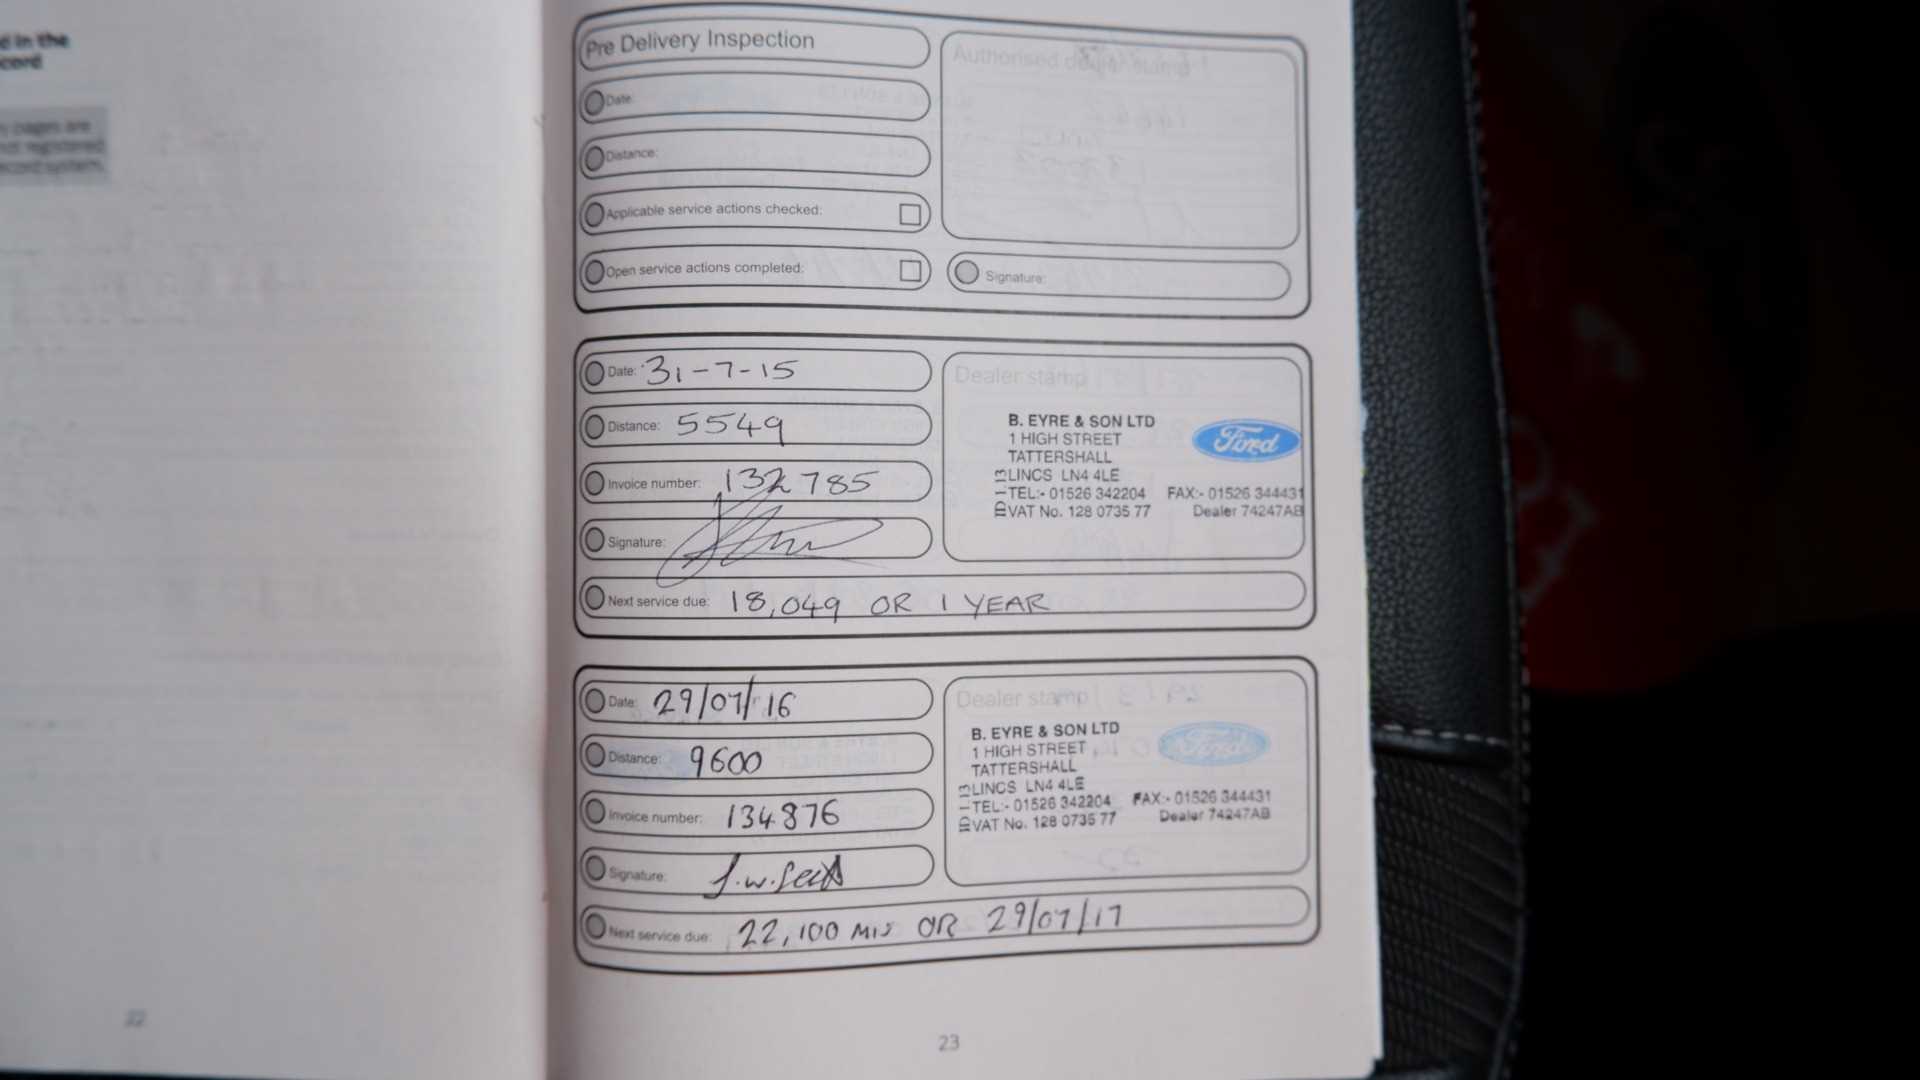 d in the
cord
y pages are
not registered
ecord system.
22
Pre Delivery Inspection
Authorised dealer stamp
Date:
Distance:
Applicable service actions checked:
Open service actions completed:
Signature:
Date: 31-7-15
Distance: 5549
Invoice number: 132785
Signature:
Next service due: 18,049 OR 1 YEAR
Dealer stamp
B. EYRE & SON LTD
1 HIGH STREET
TATTERSHALL
LINCS LN4 4LE
TEL:- 01526 342204 FAX:- 01526 344431
VAT No. 128 0735 77 Dealer 74247AB
Ford
Date: 29/07/16
Distance: 9600
Invoice number: 134876
Signature:
Next service due: 22,100 MIS OR 29/07/17
Dealer stamp
B. EYRE & SON LTD
1 HIGH STREET
TATTERSHALL
LINCS LN4 4LE
TEL:- 01526 342204 FAX:- 01526 344431
VAT No. 128 0735 77 Dealer 74247AB
Ford
23